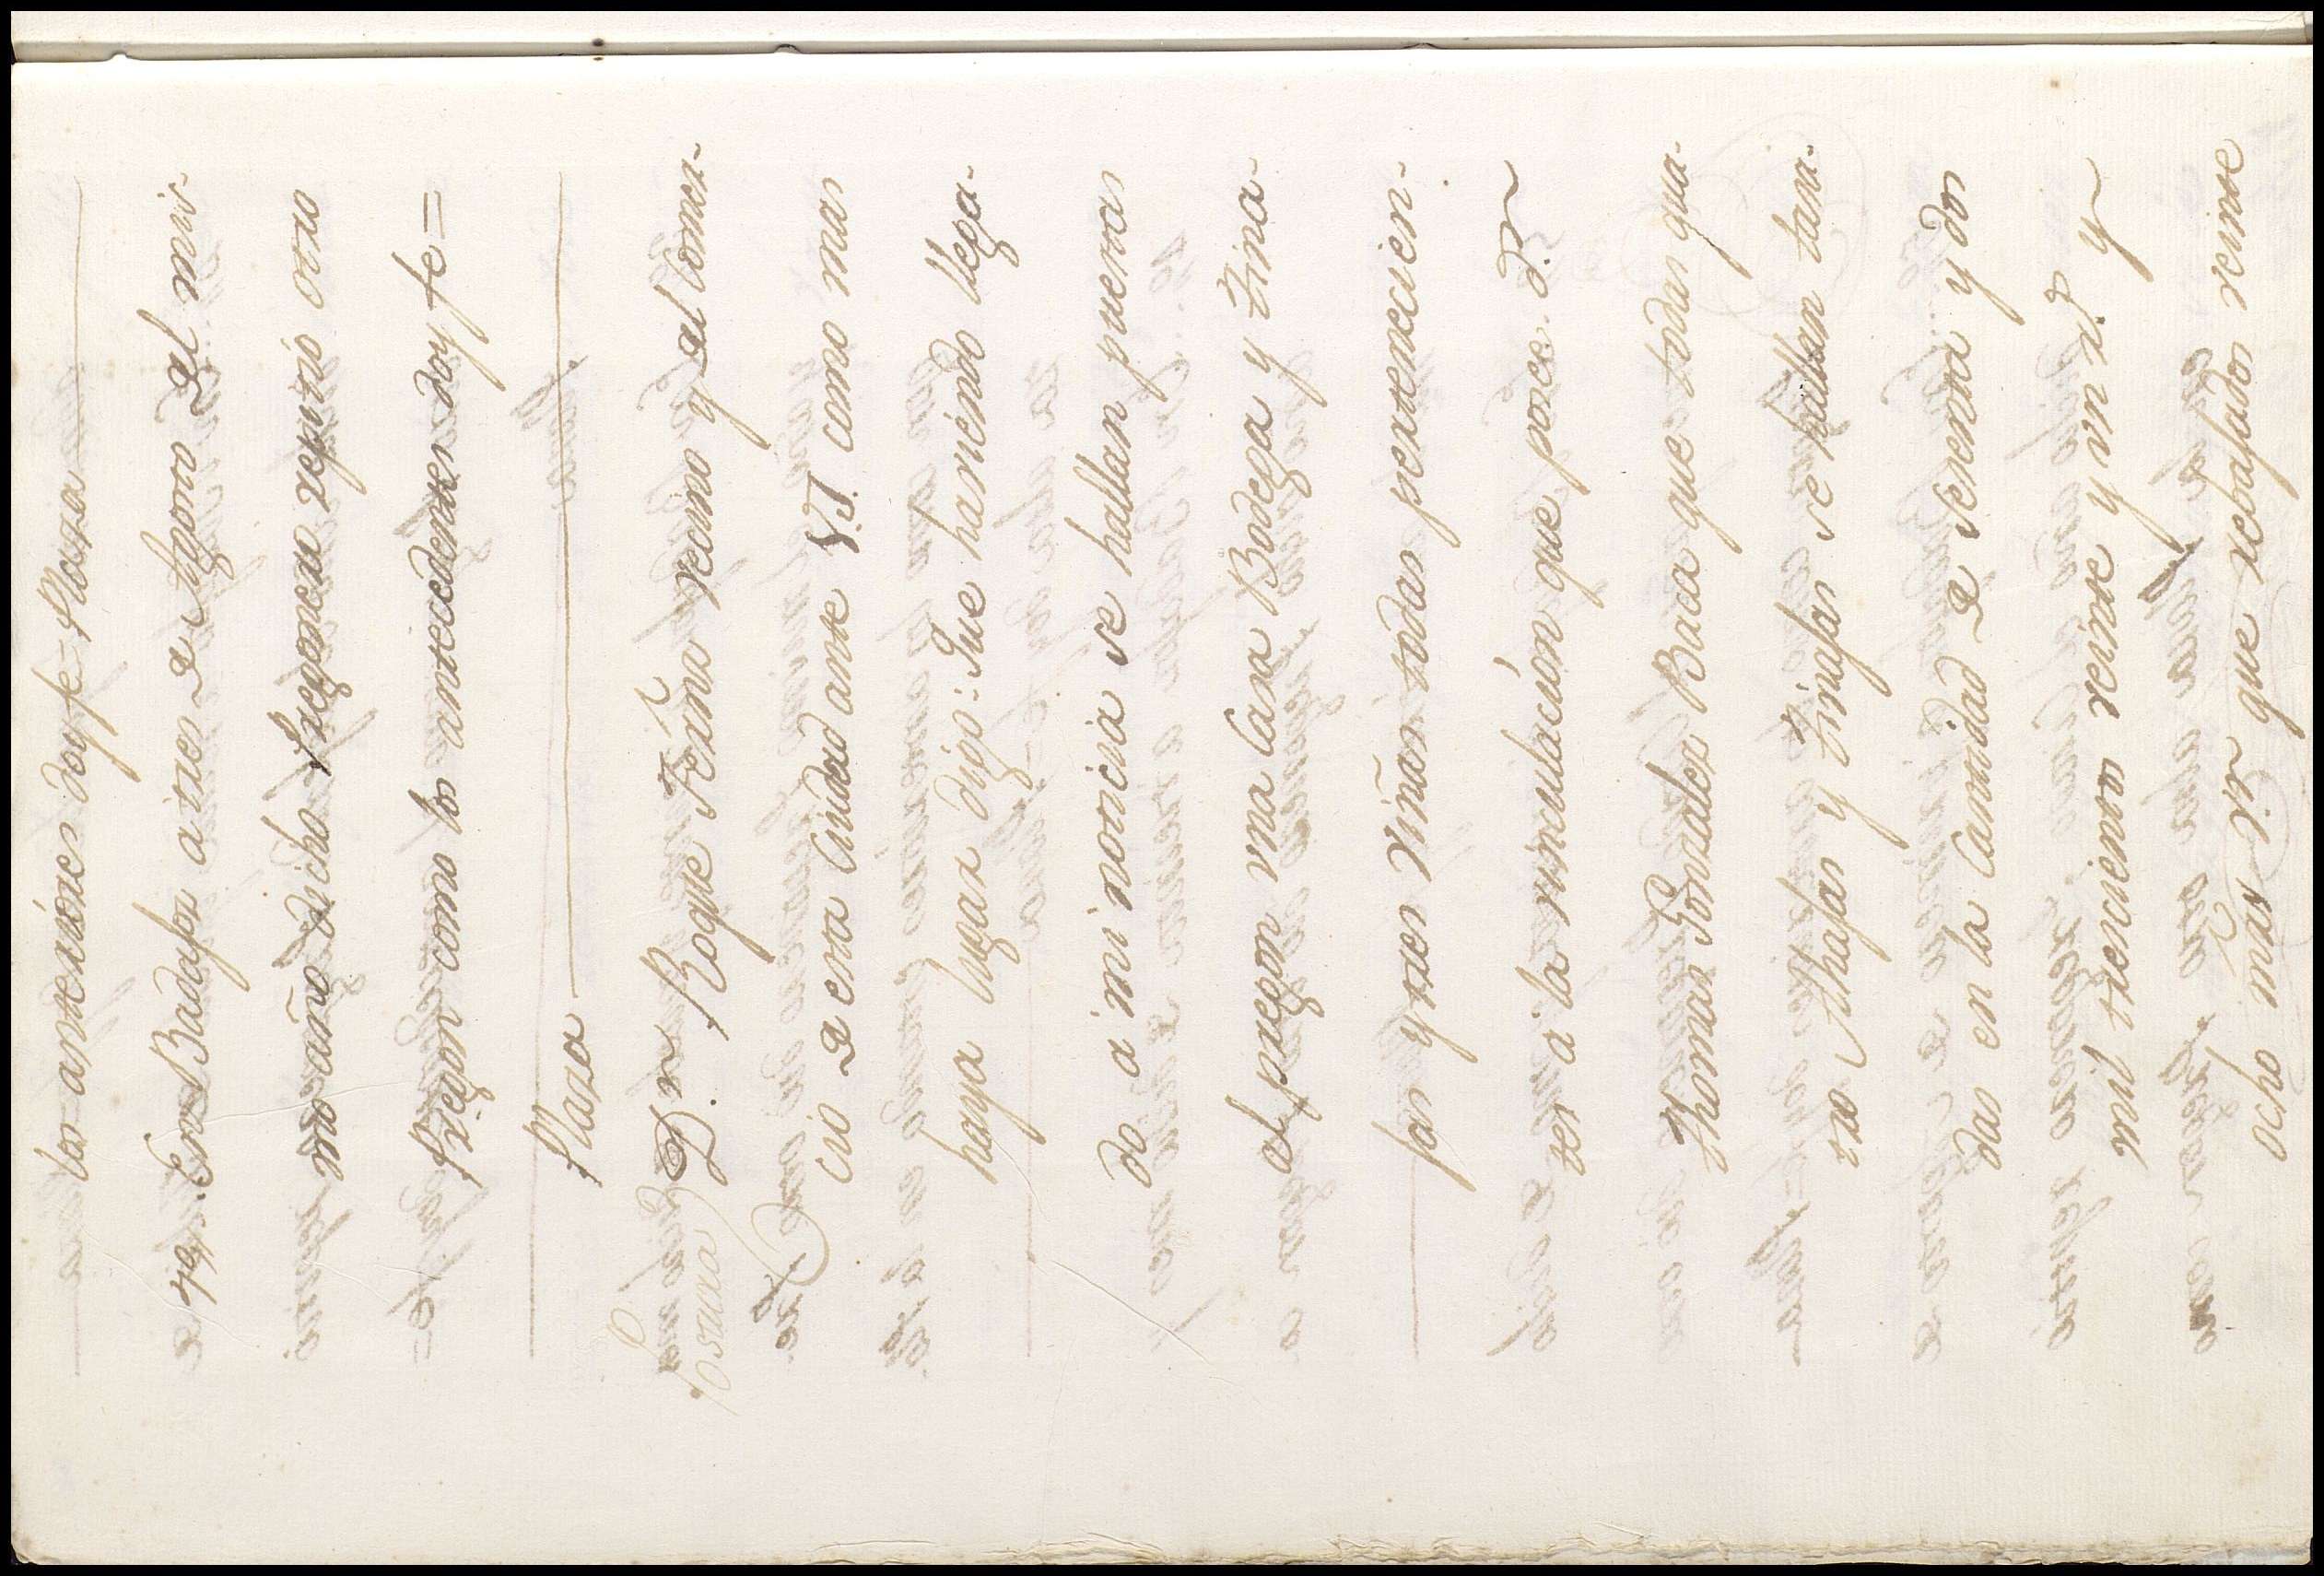 los anteriores doy fe= Plaza
En Badajoz a tres de Agosto del mis-
mo año dicho Pregonero repitió otro
Pregon como los antecedentes doy fe=
Plaza
Dn. Roque Feama vecino y del Comer-
cio de esta Ciudad ante V.S. como mas
haya lugar digo: Que haviendo llega-
do a mi noticia se hallan puestas
al pregon una Casa Bodega y tina-
jas y tres viñas todas pertenecien-
tes a la vinculación que posee. D.n
Thomas Gonzalez Baca que todas qua-
tro Alhajas y tinajas se hallan tasa-
das en la Cantidad de Setenta y dos
mil trescientos veinte y un r.s y
ocho mrs v.n que rebajados veinte
Postura